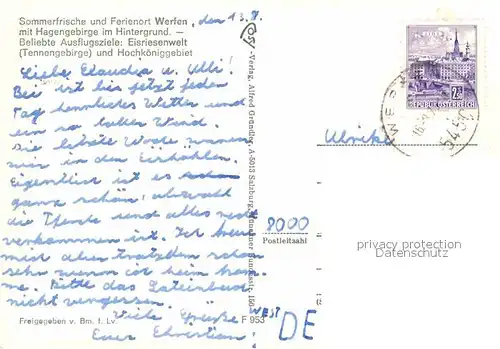 Sommerfrische und Ferienort Werfen,
mit Hagengebirge im Hintergrund. —
Beliebte Ausflugsziele: Eisriesenwelt
(Tennengebirge) und Hochköniggebiet
, den 13.8.
Liebe Claudia u. Ulli!
Bei ist bis jetzt jeden
Tag herrliches Wetter und
ein so lauer Wind.
Die letzte Woche waren
wir in den Eishöhlen.
Eigentlich ist es schon
ganz schön, obwohl
die Pferde und alles
verkommen ist. Ich freue
mich aber trotzdem schon
sehr wenn ich heim kom-
me. Bitte das Lateinbuch
nicht vergessen.
Viele Grüße
Euer Christian!
Freigegeben v. Bm. f. Lv.
F 953
Verlag Alfred Gründler, A-5013 Salzburg
2,50
REPUBLIK ÖSTERREICH
5450
Ulrike
8000
Postleitzahl
WEST
DE
privacy protection
Datenschutz